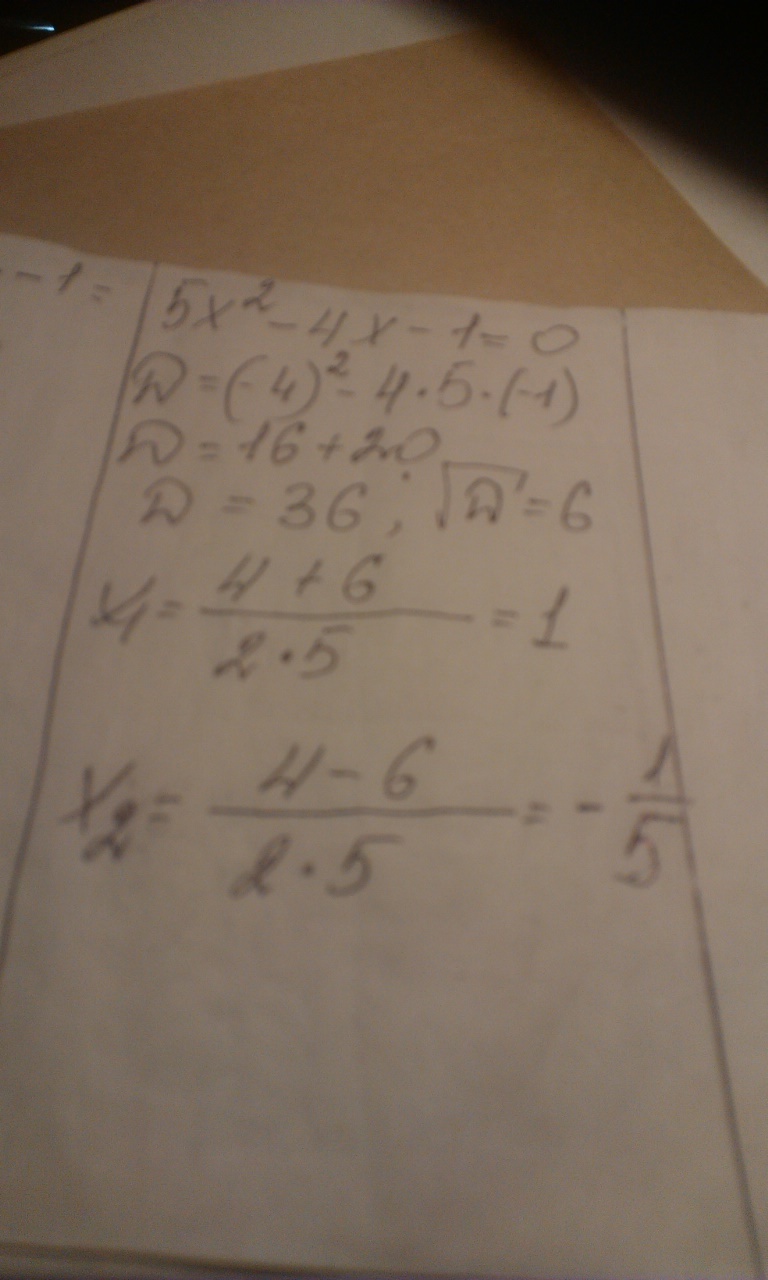 - 1 =
5x² - 4x - 1 = 0
D = (-4)² - 4·5·(-1)
D = 16 + 20
D = 36; √D = 6
x₁ = (4 + 6)/(2·5) = 1
x₂ = (4 - 6)/(2·5) = - 1/5